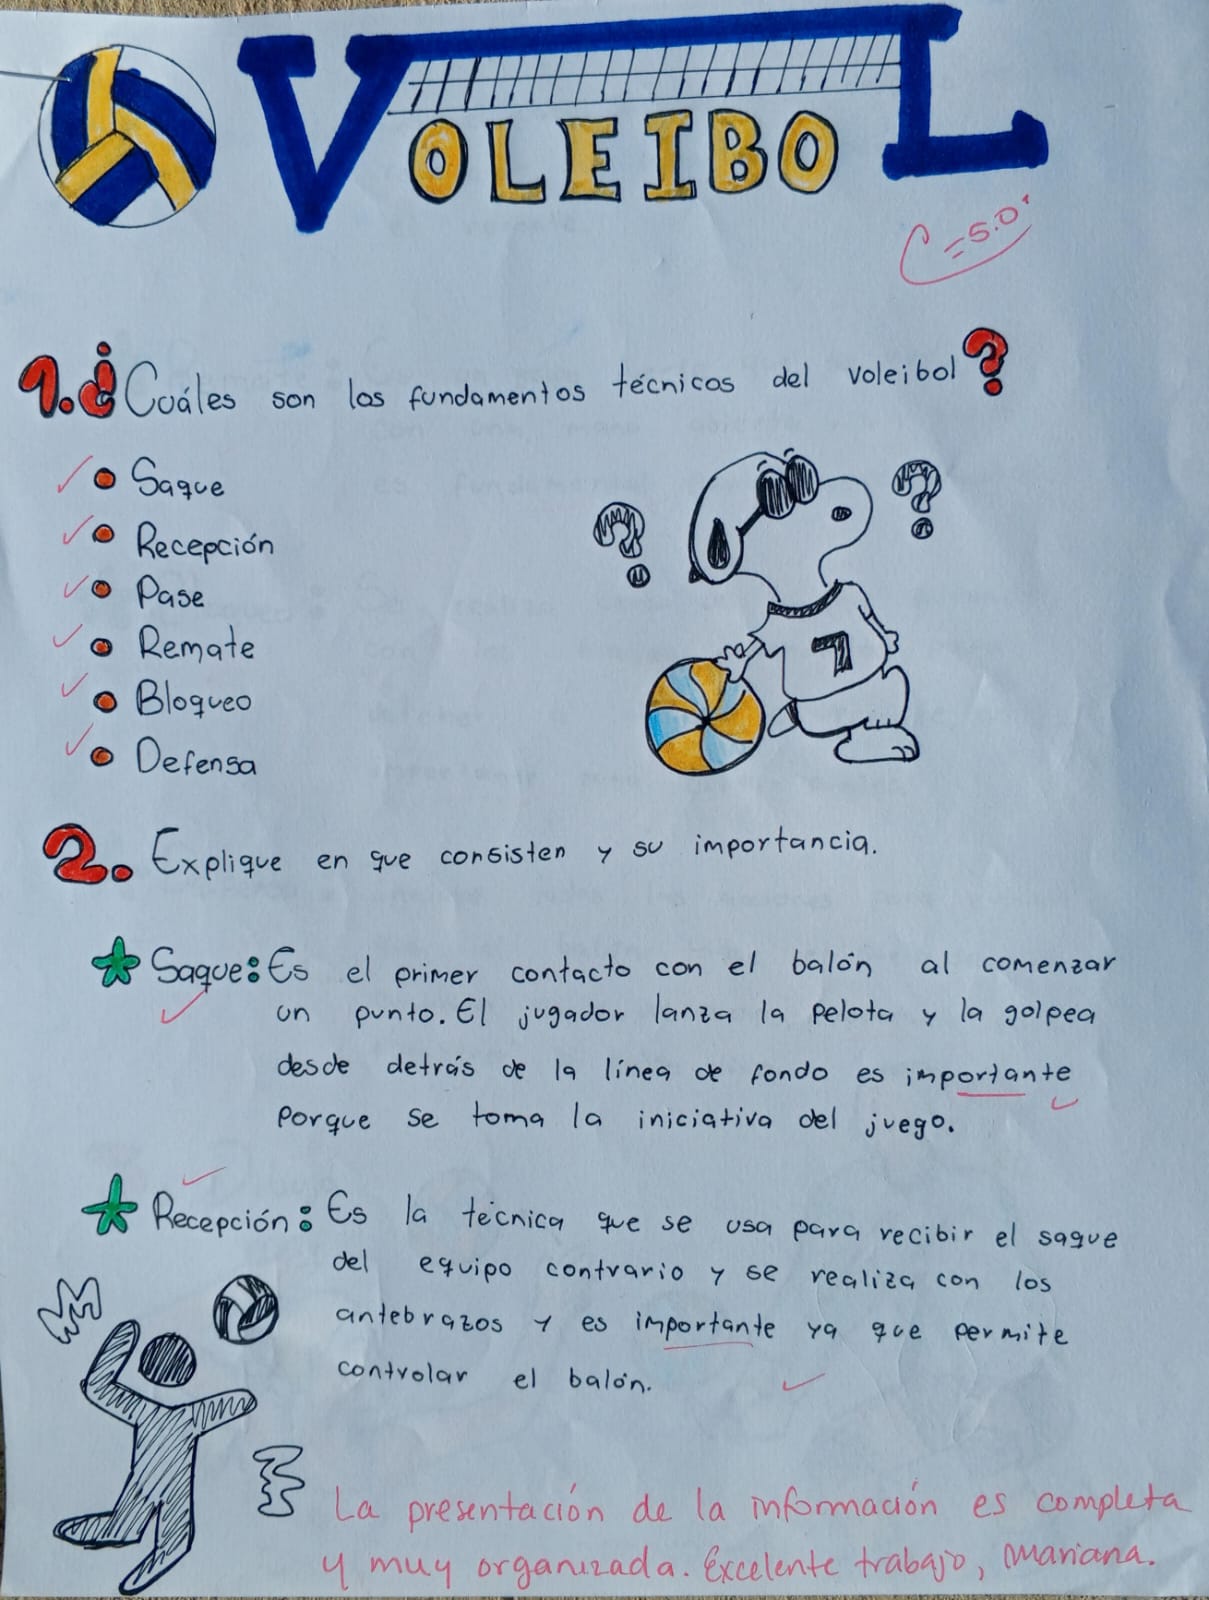 VOLEIBOL
C=5.0
1. ¿Cuáles son los fundamentos técnicos del voleibol?
Saque
Recepción
Pase
Remate
Bloqueo
Defensa
7
2. Explique en que consisten y su importancia.
Saque: Es el primer contacto con el balón al comenzar
un punto. El jugador lanza la pelota y la golpea
desde detrás de la línea de fondo es importante
porque se toma la iniciativa del juego.
Recepción: Es la técnica que se usa para recibir el saque
del equipo contrario y se realiza con los
antebrazos y es importante ya que permite
controlar el balón.
La presentación de la información es completa
y muy organizada. Excelente trabajo, Mariana.